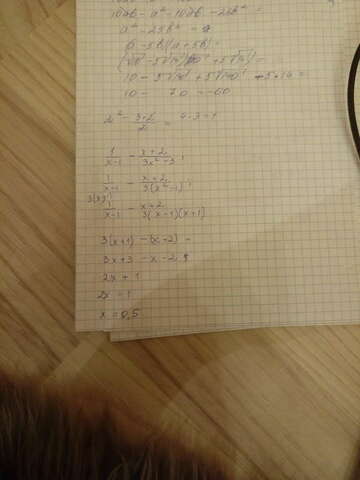 10ab - a² - 10ab - 25b² =
a² - 25b² =
(a - 5b)(a + 5b) =
10 - 5√140 + 5√140 - 5·14 =
10 - 70 = -60
2² - 3·2/2 = 4 - 3 = 1
1/x-1 - x+2/3x²-3 ;
1/x-1 - x+2/3(x²-1) ;
3(x+1) 1/x-1 - x+2/3(x-1)(x+1)
3(x+1) - (x+2) =
3x+3 - x - 2
2x + 1
2x = 1
x = 0,5